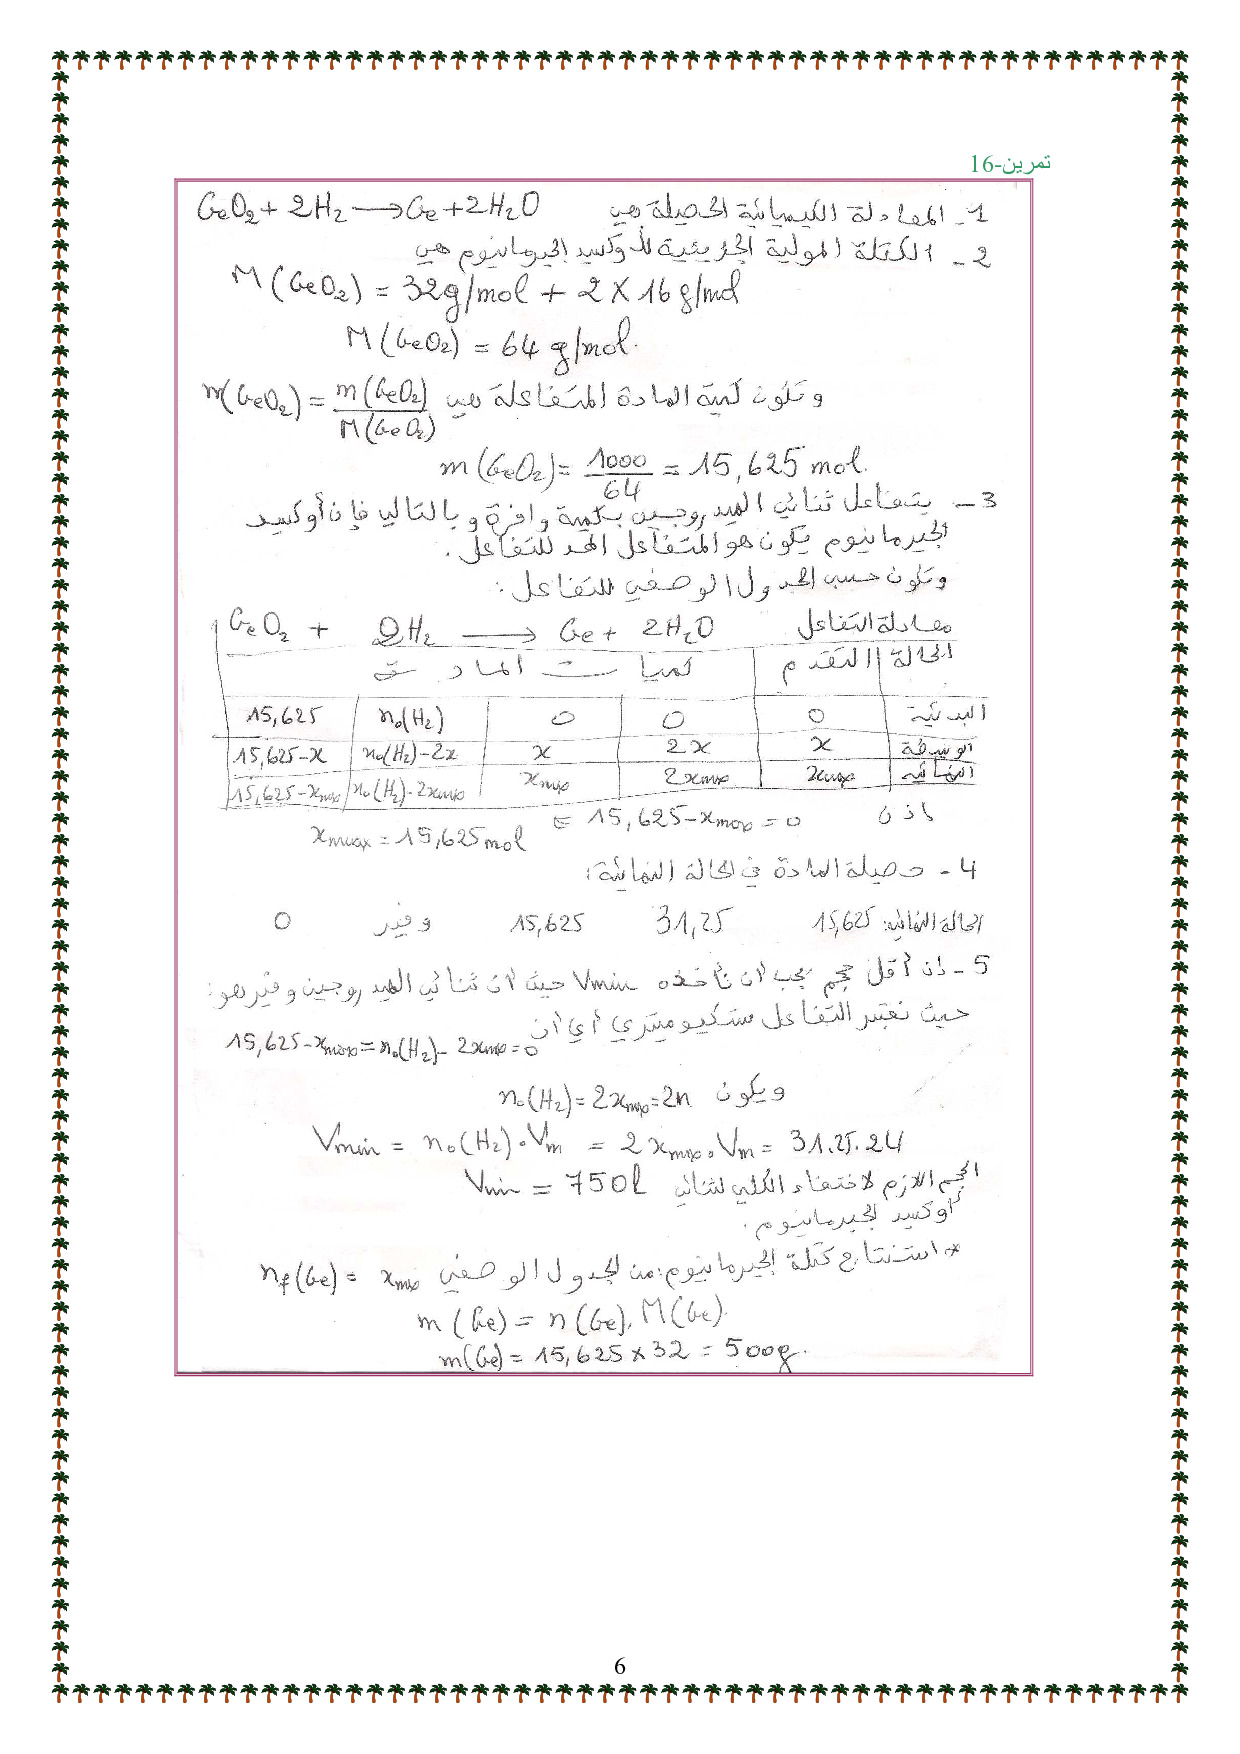 تمرين-16
1- المعادلة الكيميائية الحصيلة هي GeO2 + 2H2 → Ge + 2H2O
2- الكتلة المولية الجزيئية لأوكسيد الجيرمانيوم هي
M(GeO2) = 32g/mol + 2 X 16 g/mol
M(GeO2) = 64 g/mol.
وتكون كمية المادة المتفاعلة هي m(GeO2) = m(GeO2) / M(GeO2)
m(GeO2) = 1000 / 64 = 15,625 mol.
3- يتفاعل ثنائي الهيدروجين بكمية وافرة وبالتالي فإن أوكسيد
الجيرمانيوم يكون هو المتفاعل المحد للتفاعل.
وتكون حسب الجدول الوصفي للتفاعل:
معادلة التفاعل GeO2 + 2H2 → Ge + 2H2O
الحالة التقدم كميات المادة
البدئية 0 0 0 n0(H2) 15,625
الوسطية x 2x x n0(H2)-2x 15,625-x
النهائية xmax 2xmax xmax n0(H2)-2xmax 15,625-xmax
اذن 15,625-xmax = 0
xmax = 15,625 mol
4- حصيلة المادة في الحالة النهائية:
الحالة النهائية: 15,625 31,25 15,625 وفير 0
5- إن أقل حجم يجب أن نأخذه Vmin حيث أن ثنائي الهيدروجين وفير هو:
حيث نعتبر التفاعل ستكيوميتري أي أن
15,625-xmax = n0(H2) - 2xmax = 0
ويكون n0(H2) = 2xmax = 2n
Vmin = n0(H2).Vm = 2xmax.Vm = 31.25.24
الحجم اللازم لاختفاء الكلي لثنائي Vmin = 750l
أوكسيد الجيرمانيوم.
* استنتاج كتلة الجيرمانيوم: من الجدول الوصفي nf(Ge) = xmax
m(Ge) = n(Ge).M(Ge).
m(Ge) = 15,625 x 32 = 500g.
6